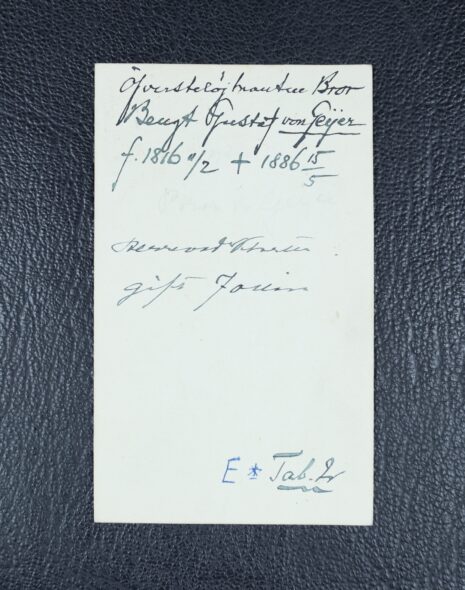 Öfverstelöjtnanten Bror
Bengt Gustaf von Geijer
f. 1816 11/2 + 1886 15/5
gift
E * Tab. 2